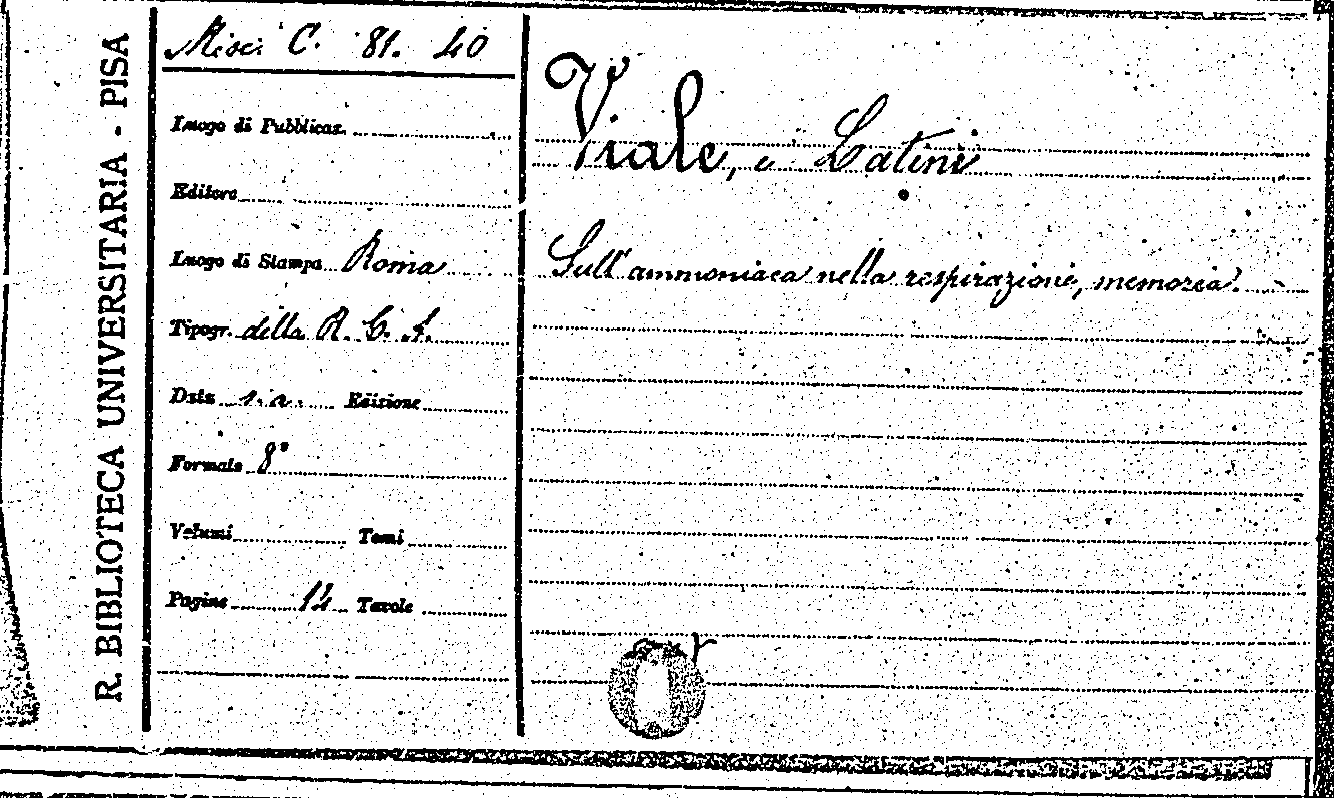 R. BIBLIOTECA UNIVERSITARIA - PISA
Misc. C. 81. 40
Luogo di Pubblicaz.
Editore
Luogo di Stampa Roma
Tipogr. della R. C. A.
Data s. a. Edizione
Formato 8°
Volumi Tomi
Pagine 14 Tavole
Viale, e Latini
Sull'ammoniaca nella respirazione, memoria.